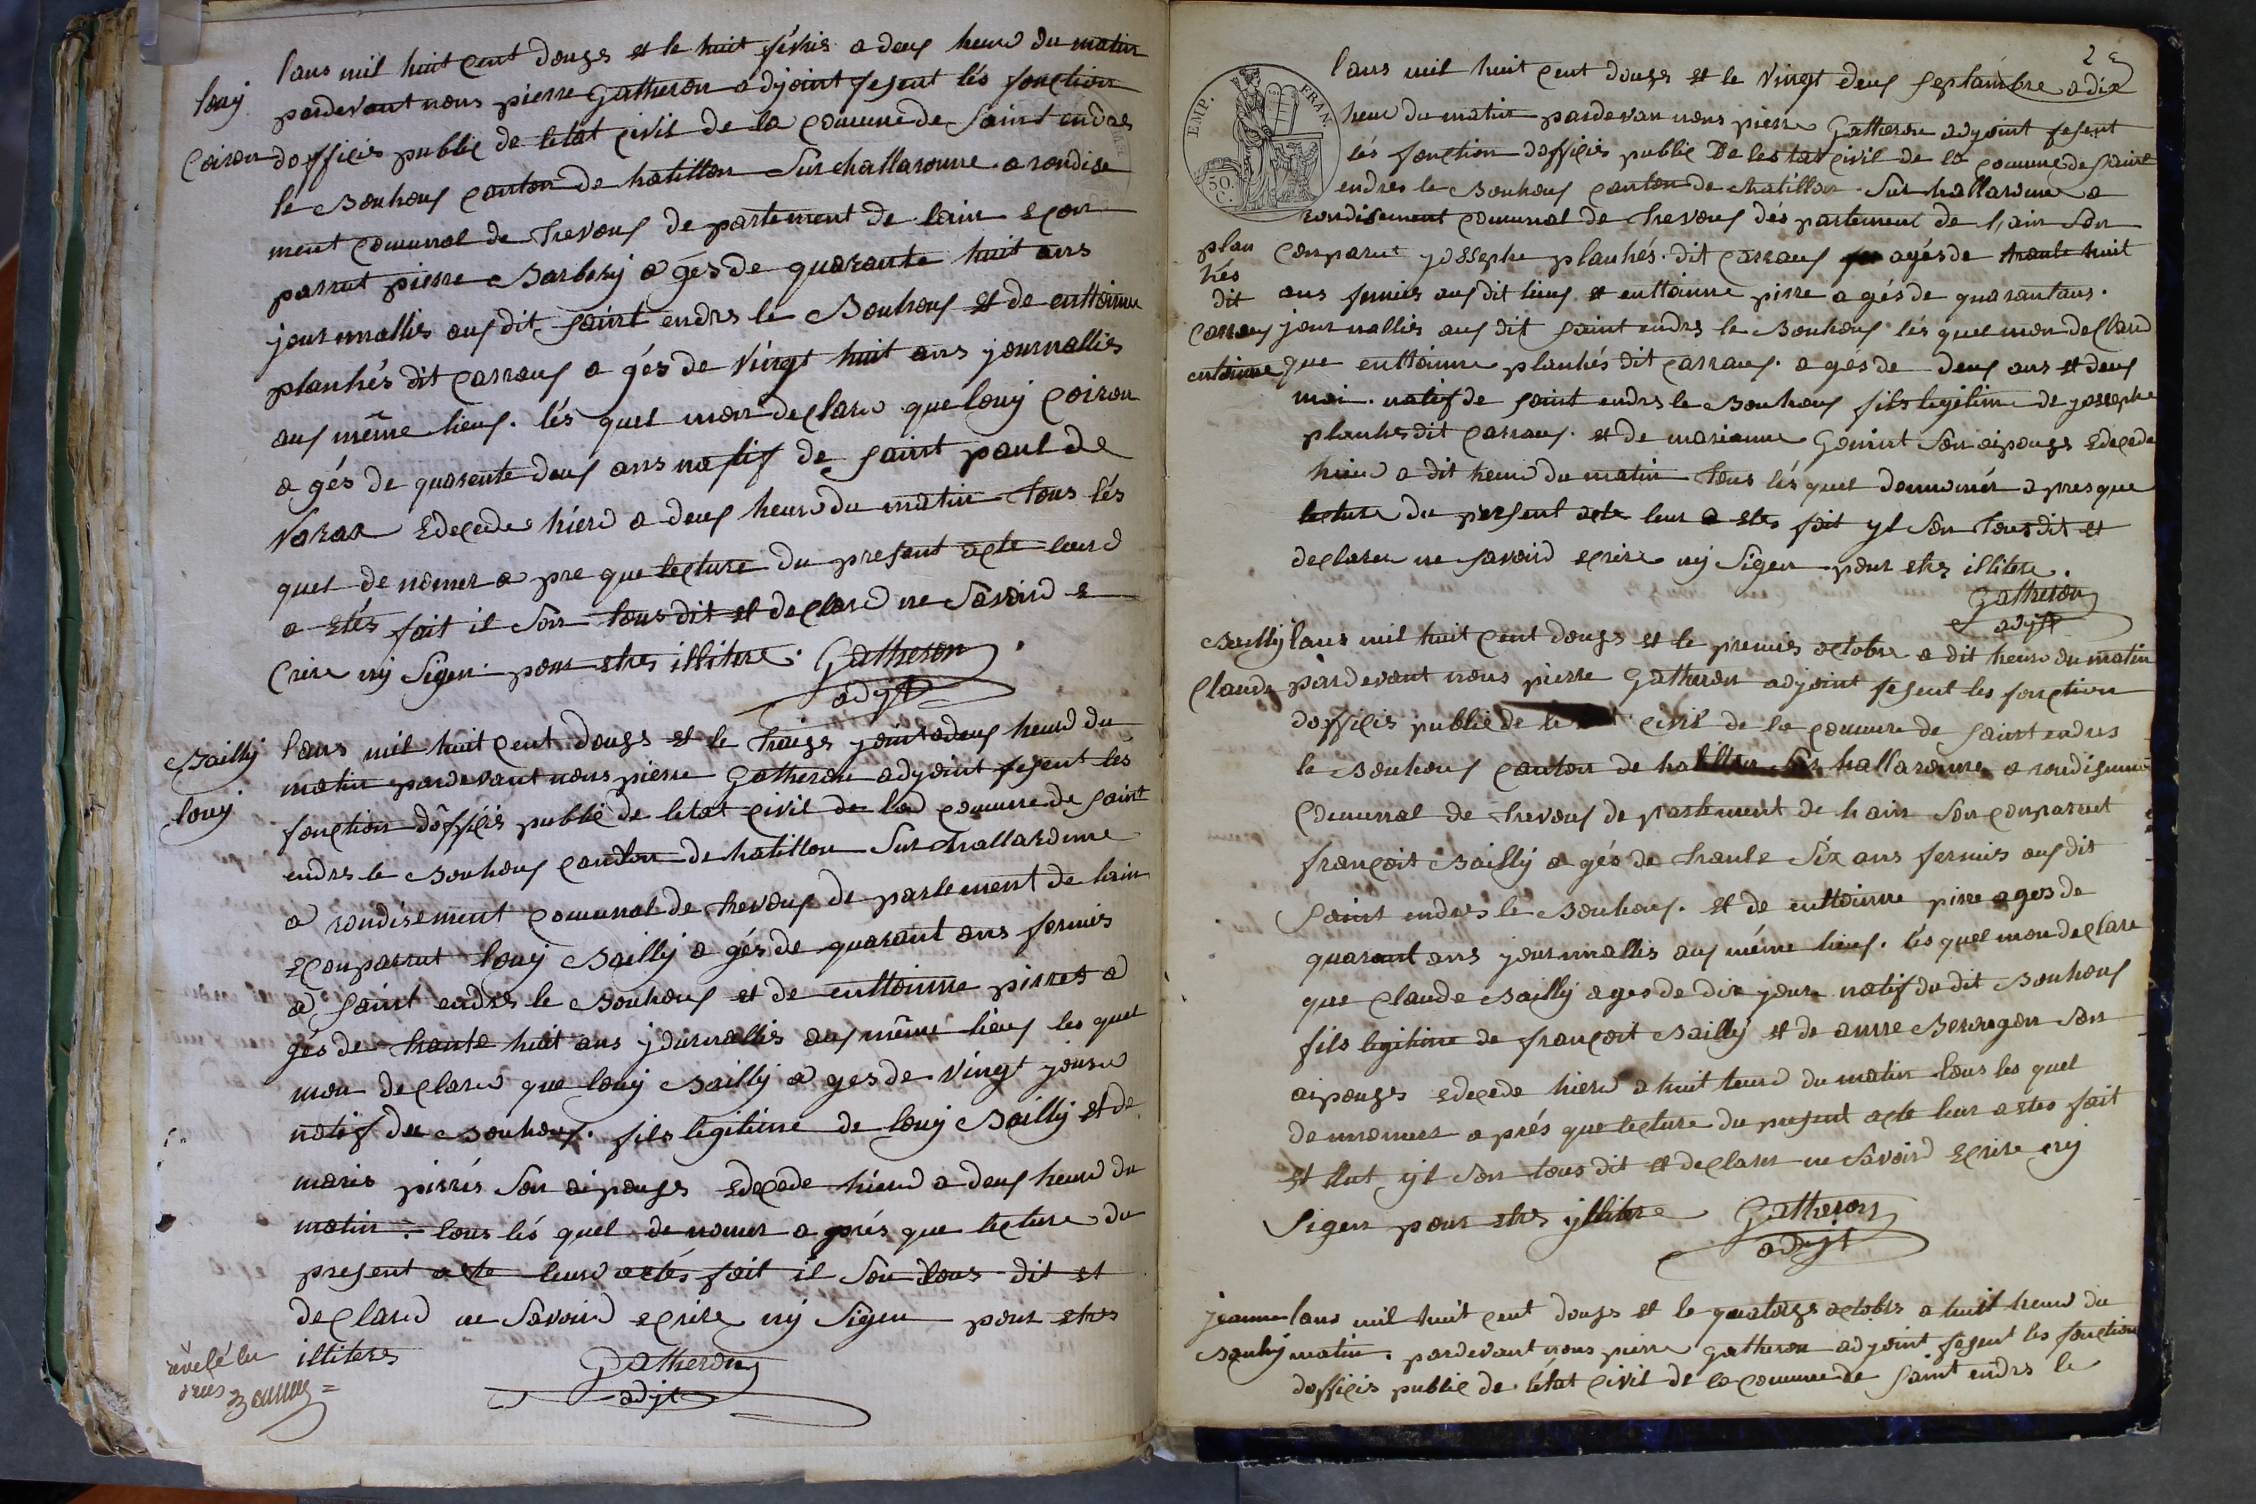 louij
coiron
lans mil huit cent douze et le huit févrie a deuf heurd du matin
pardevant nous pierre Gatheron adjoint fesent lés fonction
dofficis public de letat civil de la comune de saint endres
le Bouhouf canton de hatillon sur challaronne arondise
ment comunal de trevouf de partement de lain econ
parrut pierre Barbery a gés de quarante huit ans
journallies auf dit saint endrs le Bouhouf et de enttoinne
planhés dit carrauf a gés de vingt huit ans journallies
auf même lieuf. lés quel mon declard que louij coiron
a gés de quarente deuf ans natif de saint paul de
varax edecede hierd a deuf heurd du matin tous lés
quel de nomer a pre que lecture du presant acte leurd
a etés fait il son tous dit et declard ne savoird e
crire nij siger pour etre illitere. Gatheron
adjt
Bailly
louij
lans mil huit cent douzs et le treizs jouit a deuf heurd du
matin pardevant nous pierre Gatheron adjoint fesent lés
fonction dofficis public de letat civil de lad comune de saint
endrs le Bouhouf canton de hatillon sur challardnne
a rondisement comunal de trevouf de partement de lain
econparrut louij Bailly a gés de quarant ans fermies
a saint endrs le Bouhouf et de enttoinne pirres a
gés de trante huit ans journallis auf même lieuf les quel
mon declard que louij Bailly a ges de vingt jourd
natif du Bouhouf. fils legitime de louij Bailly et de
marie pirrés son aipouzs edecede hierd a deuf heurd du
matin. tous lés quel de nomer a prés que lecture du
present acte leurd a etés fait il son tous dit et
declard ne savoird ecrire nij siger pour etre
illiters Gatheron
adjt
2 e
EMP. FRAN.
50. C.
plan
hés
dit
carrauf
entoinne
lans mil huit cent douzs et le vingt deuf septambre a dix
heur du matin pardevan nous pierre Gatheron adjoint fesent
lés fonction dofficis public de les tat civil de la comune de saint
endres le Bouhouf canton de chatillon sur hallaronne a
rondisement comunal de trevouf dés partement de l,ain son
conparut yossephe planhés. dit carrauf agés de trante huit
ans fermies auf dit lieuf et enttoinne pirre a gés de quarantans.
journallies auf dit saint endrs le Bouhouf lés quel mon declard
que enttoinne planhés dit carrauf. a gés de deuf ans et deuf
moi. natif de saint endrs le Bouhouf fils legitime de yossephe
planhés dit carrauf. et de marianne Goninnt son aipouzs edecede
hierd a dit heurd du matin tous lés quel denomér a pres que
lecture du persent acte leur a etes fait yl son tous dit et
declarer ne savoird ecrire nij siger pour etre illitere.
Gatheron
adjt
Bailly
Claude
lans mil huit cent douzs et le premies octobre a dit heurd du matin
pardevant nous pierre Gatheron adjoint fesent les fonction
dofficis public de le civil de la comune de saint endres
le Bouhouf canton de hatillon sur hallaronne a rondisement
comunal de trevouf de partement de hain son conparuet
françoit Bailly a gés de trante six ans fermies auf dit
saint endrs le Bouhouf. et de enttoinne pirre a ges de
quarant ans journallis auf même lieuf. lés quel mon declare
que claude Bailly a ges de dix jours natif du dit Bouhouf
fils legitime de françoit Bailly et de anne Berrogon son
aipouzs edecede hierd a huit heurd du matin tous les quel
denomer a prés que lecture du present acte leur a etes fait
yl son tous dit et declarer ne savoird ecrire nij
siger pour etre yllitere Gatheron
adjt
jeanne
lans mil huit cent douzs et le quatorzs octobre a huit heurd du
matin. pardevant nous pierre Gatheron adjoint fesent les fonction
dofficis public de létat civil de la comune de saint endrs le